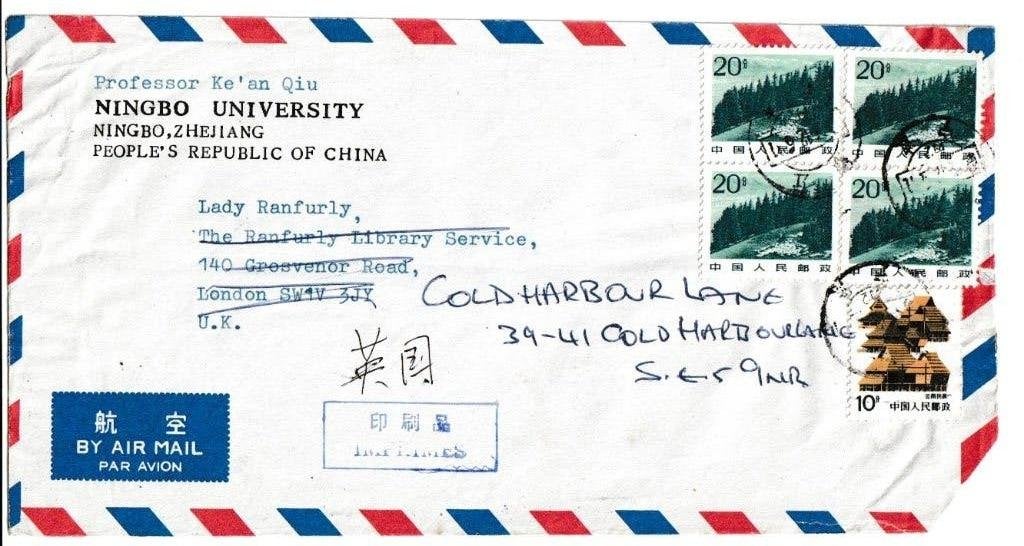 Professor Ke'an Qiu
NINGBO UNIVERSITY
NINGBO, ZHEJIANG
PEOPLE'S REPUBLIC OF CHINA
20分
中国人民邮政
20分
中国人民邮政
20分
中国人民邮政
20分
中国人民邮政
10分
云南民居
中国人民邮政
Lady Ranfurly,
The Ranfurly Library Service,
140 Grosvenor Road,
London SW1V 3JY
U.K.
COLDHARBOUR LANE
39-41 COLD HARBOUR LANE
S.E5 9NR
英国
印刷品
IMPRIMES
航空
BY AIR MAIL
PAR AVION